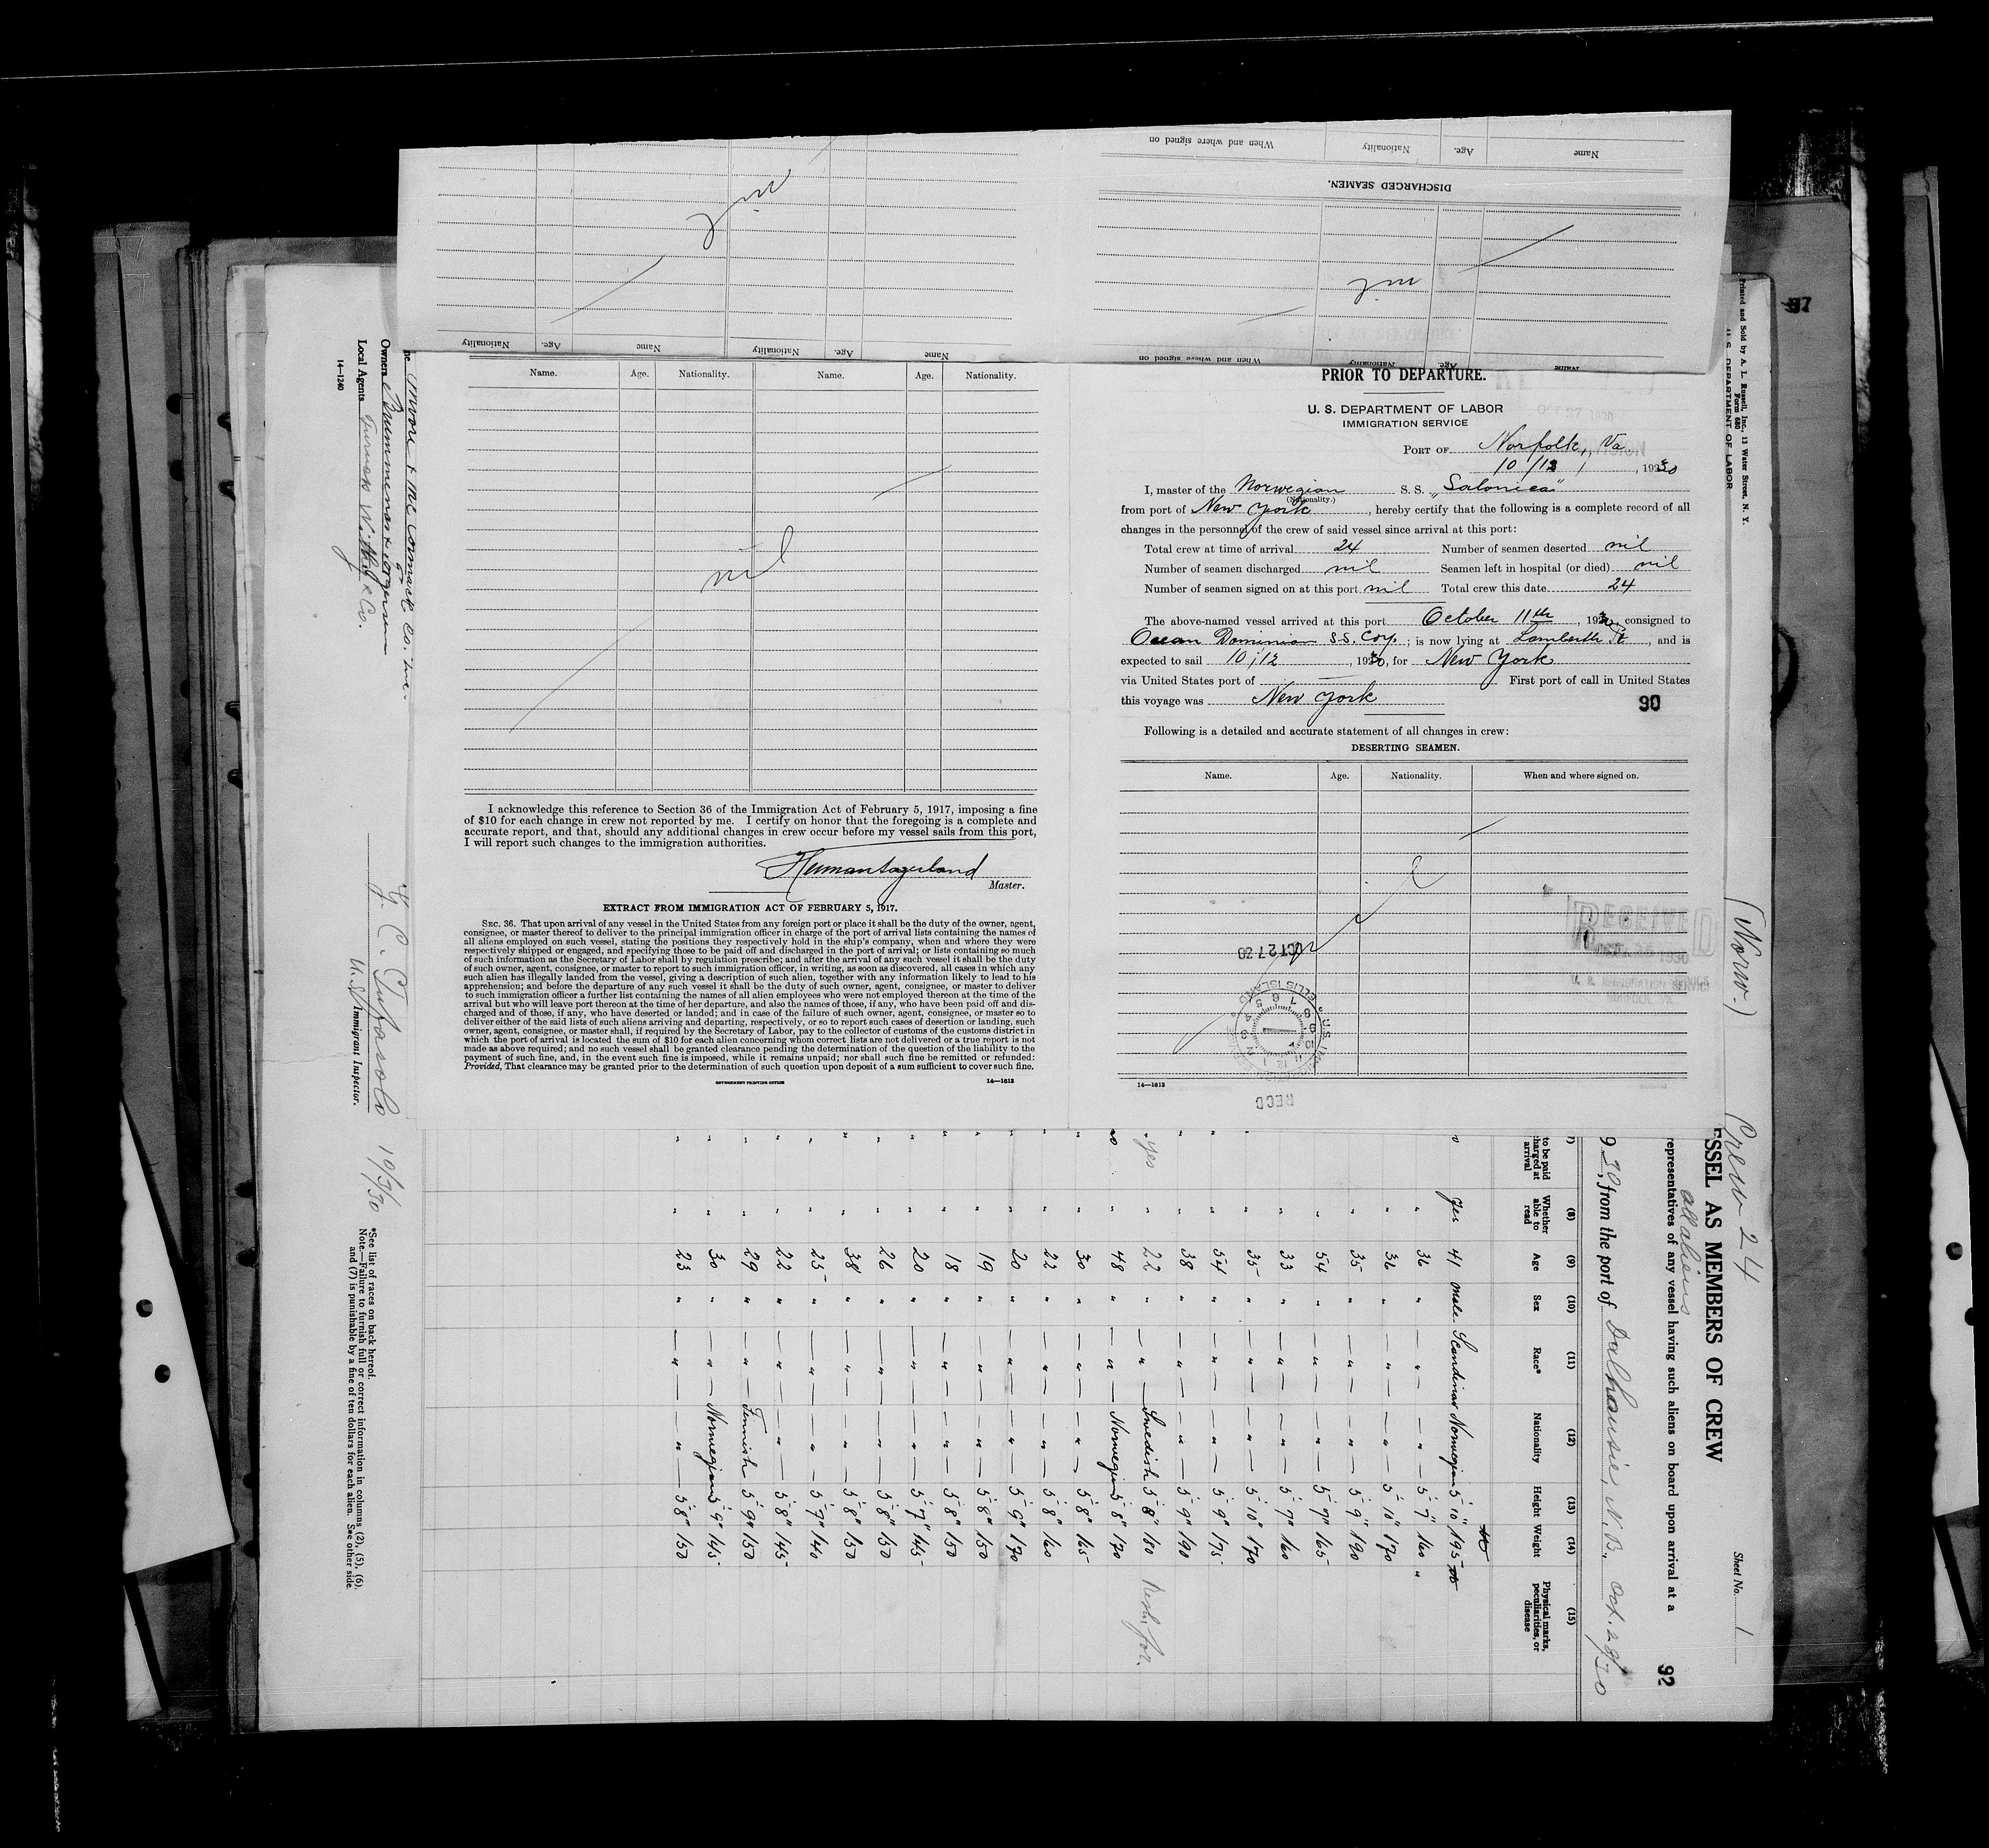 When and where signed on Nationality Age. Name
DISCHARGED SEAMEN.
nil
nil
Nationality Age. Name Nationality Age. Name
When and where signed on Nationality Age. Name
Name. Age. Nationality. Name. Age. Nationality.
nil
I acknowledge this reference to Section 36 of the Immigration Act of February 5, 1917, imposing a fine
of $10 for each change in crew not reported by me. I certify on honor that the foregoing is a complete and
accurate report, and that, should any additional changes in crew occur before my vessel sails from this port,
I will report such changes to the immigration authorities.
Master.
EXTRACT FROM IMMIGRATION ACT OF FEBRUARY 5, 1917.
SEC. 36. That upon arrival of any vessel in the United States from any foreign port or place it shall be the duty of the owner, agent,
consignee, or master thereof to deliver to the principal immigration officer in charge of the port of arrival lists containing the names of
all aliens employed on such vessel, stating the positions they respectively hold in the ship's company, when and where they were
respectively shipped or engaged, and specifying those to be paid off and discharged in the port of arrival; or lists containing so much
of such information as the Secretary of Labor shall by regulation prescribe; and after the arrival of any such vessel it shall be the duty
of such owner, agent, consignee, or master to report to such immigration officer, in writing, as soon as discovered, all cases in which any
such alien has illegally landed from the vessel, giving a description of such alien, together with any information likely to lead to his
apprehension; and before the departure of any such vessel it shall be the duty of such owner, agent, consignee, or master to deliver
to such immigration officer a further list containing the names of all alien employees who were not employed thereon at the time of the
arrival but who will leave port thereon at the time of her departure, and also the names of those, if any, who have been paid off and dis-
charged and of those, if any, who have deserted or landed; and in case of the failure of such owner, agent, consignee, or master so to
deliver either of the said lists of such aliens arriving and departing, respectively, or so to report such cases of desertion or landing, such
owner, agent, consignee, or master shall, if required by the Secretary of Labor, pay to the collector of customs of the customs district in
which the port of arrival is located the sum of $10 for each alien concerning whom correct lists are not delivered or a true report is not
made as above required; and no such vessel shall be granted clearance pending the determination of the question of the liability to the
payment of such fine, and, in the event such fine is imposed, while it remains unpaid; nor shall such fine be remitted or refunded:
Provided, That clearance may be granted prior to the determination of such question upon deposit of a sum sufficient to cover such fine.
GOVERNMENT PRINTING OFFICE 14—1613
PRIOR TO DEPARTURE.
U. S. DEPARTMENT OF LABOR
IMMIGRATION SERVICE
OCT 27 1930
PORT OF Norfolk, Va
10/12, 1930
I, master of the Norwegian S. S. "Salonica"
(Nationality.)
from port of New York, hereby certify that the following is a complete record of all
changes in the personnel of the crew of said vessel since arrival at this port:
Total crew at time of arrival 24 Number of seamen deserted nil
Number of seamen discharged nil Seamen left in hospital (or died) nil
Number of seamen signed on at this port nil Total crew this date 24
The above-named vessel arrived at this port October 11th, 1930, consigned to
Ocean Dominion S.S. Corp.; is now lying at Lamberth Pt, and is
expected to sail 10/12, 1930, for New York
via United States port of — First port of call in United States
this voyage was New York
90
Following is a detailed and accurate statement of all changes in crew:
DESERTING SEAMEN.
Name. Age. Nationality. When and where signed on.
nil
RECEIVED
1930
U. S. IMMIGRATION SERVICE
NORFOLK, VA.
OCT 27 30
ELLIS ISLAND
RECD
14—1613
97
Printed and Sold by A. L. Russell, Inc., 13 Water Street, N. Y.
Form 680
U. S. DEPARTMENT OF LABOR
(Norw.) Crew 24 Sheet No. 1
all aliens
SSEL AS MEMBERS OF CREW
representatives of any vessel having such aliens on board upon arrival at a
92
930, from the port of Dalhousie, N. B. Oct. 28/30
(7) (8) (9) (10) (11) (12) (13) (14) (15)
to be paid
charged at
arrival
Whether
able to
read
Age Sex Race* Nationality Height Weight
Physical marks,
peculiarities, or
disease
o yes 41 male Scandinav Norwegian 5' 10" 195
" 36 " " " 5' 7" 160 "
" 36 " " " 5' 10" 170
" 35 " " " 5' 9" 190
" 54 " " " 5' 7" 165
" 33 " " " 5' 7" 160
" 35 " " " 5' 10" 170
" " 54 " " " 5' 9" 175
" " 38 " " " 5' 9" 190
yes " 22 " " Swedish 5' 8" 180
no " 48 " " Norwegian 5' 8" 170
" " 30 " " " 5' 8" 165
" " 22 " " " 5' 8" 160
" " 20 " " " 5' 9" 170
" " 19 " " " 5' 8" 150
" " 18 " " " 5' 8" 150
" " 20 " " " 5' 7" 145
" " 26 " " " 5' 8" 150
" " 38 " " " 5' 8" 150
" " 25 " " " 5' 7" 140
" " 22 " " " 5' 8" 145
" " 29 " " Finnish 5' 9" 150
" " 30 " " Norwegian 5' 9" 145
" " 23 " " " 5' 8" 150
Moore & McCormack Co. Inc.
Owners
Local Agents Furness Withy & Co.
14—1240
10/3/30
U. S. Immigrant Inspector.
*See list of races on back hereof.
Note.—Failure to furnish full or correct information in columns (2), (5), (6),
and (7) is punishable by a fine of ten dollars for each alien. See other side.